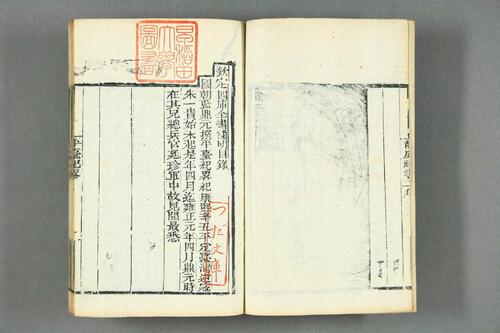 欽定四庫全書簡明目錄
國朝藍鼎元撰平臺紀畧紀康熙辛丑平定臺灣逆寇
朱一貴始末起是年四月迄雍正元年四月鼎元時
在其兄總兵官廷珍軍中故見聞最悉
平臺紀畧
早稻田大學圖書
つだ文庫